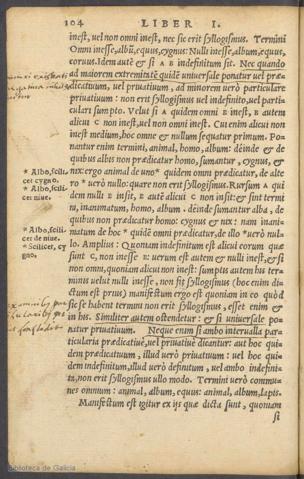 104 LIBER I.
inest, uel non omni inest, nec sic erit syllogismus. Termini
Omni inesse, albū, equus, cygnus: Nulli inesse, album, equus,
coruus. Idem autē & si A B indefinitum sit. Nec quando
ad maiorem extremitatē quidē uniuersale ponatur uel præ
dicatiuum, uel priuatiuum, ad minorem uerò particulare
priuatiuum: non erit syllogismus uel indefinito, uel parti
culari sumpto. Velut si A quidem omni B inest, B autem
alicui C non inest, uel non omni inest. Cui enim alicui non
inest medium, hoc omne & nullum sequatur primum. Po
nantur enim termini, animal, homo, album: déinde & de
quibus albis non prædicatur homo, sumantur, cygnus, &
nix: ergo animal de uno* quidem omni prædicatur, de alte
ro * uerò nullo: quare non erit syllogismus. Rursum A qui
dem nulli B insit, B autē alicui C non insit: & sint termi
ni, inanimatum, homo, album. déinde sumantur alba, de
quibus non prædicatur homo: cygnus & nix: nam inani-
matum de hoc * quidē omni prædicatur, de illo *uerò nul
lo. Amplius: Quoniam indefinitum est alicui eorum quæ
sunt C, non inesse B: uerum est autem & nulli inest, & si
non omni, quoniam alicui non inest: sumptis autem his ter
minis uelut nulli inesse, non fit syllogismus (hoc enim di-
ctum est prius) manifestum ergo est quoniam in eo quòd
sic se habent termini non erit syllogismus, esset enim &
in his. Similiter autem ostendetur: & si uniuersale po
natur priuatiuum. Neque enim si ambo interualla par-
ticularia prædicatiuè, uel priuatiuè dicantur: aut hoc qui-
dem prædicatiuum, illud uerò priuatiuum: uel hoc qui-
dem indefinitum, illud uerò definitum, uel ambo indefini-
ta, non erit syllogismus ullo modo. Termini uerò commu-
nes omnium: animal, album, equus: animal, album, lapis.
Manifestum est igitur ex ijs quæ dicta sunt, quoniam
si
* Albo, scili
cet cygno.
* Albo, scili
cet niue.
* Albo, scili
cet de niue.
* Scilicet, cy
gno.
Biblioteca de Galicia